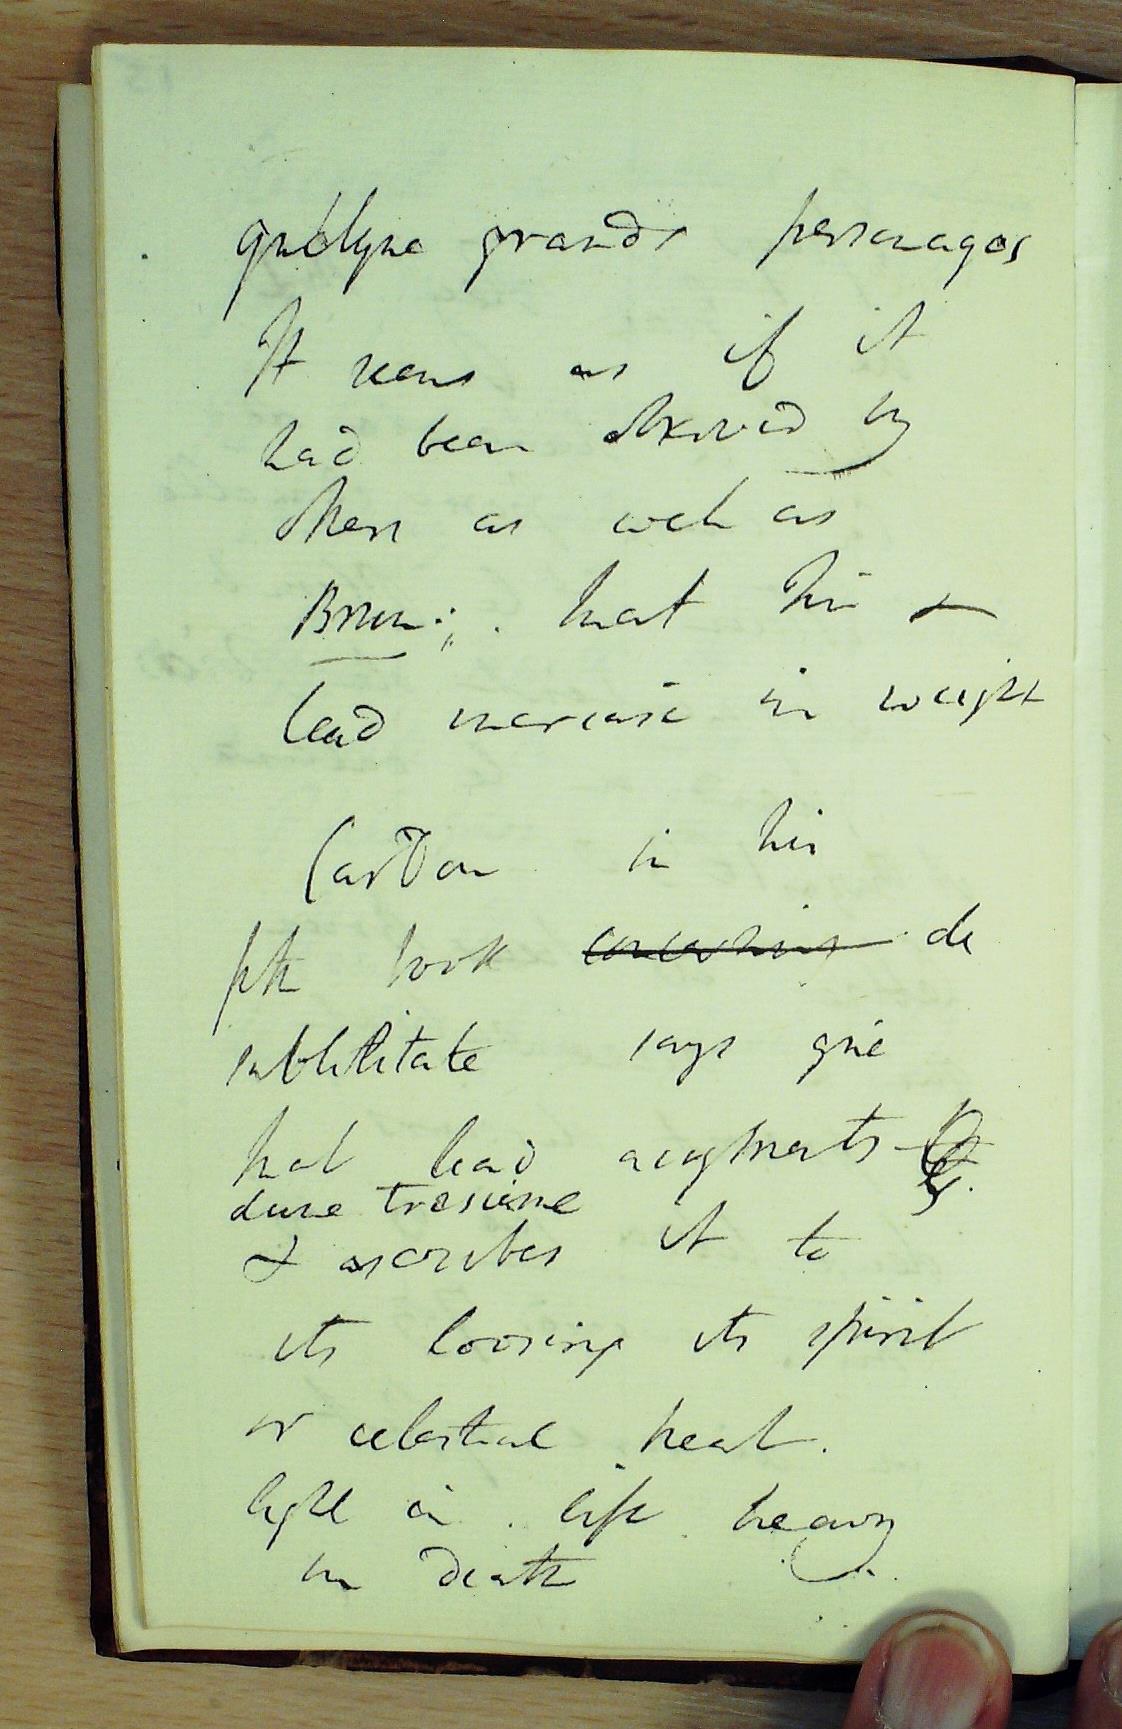 quelque grands personages
It seems as if it
had been observed by
others as well as
Brun: that tin &
lead increase in weight
Cardan in his
5th book concerning de
subtilitate says que
that lead augments
dune tresieme
& ascribes it to
its loosing its spirit
or celestial heat.
light in life heavy
in death